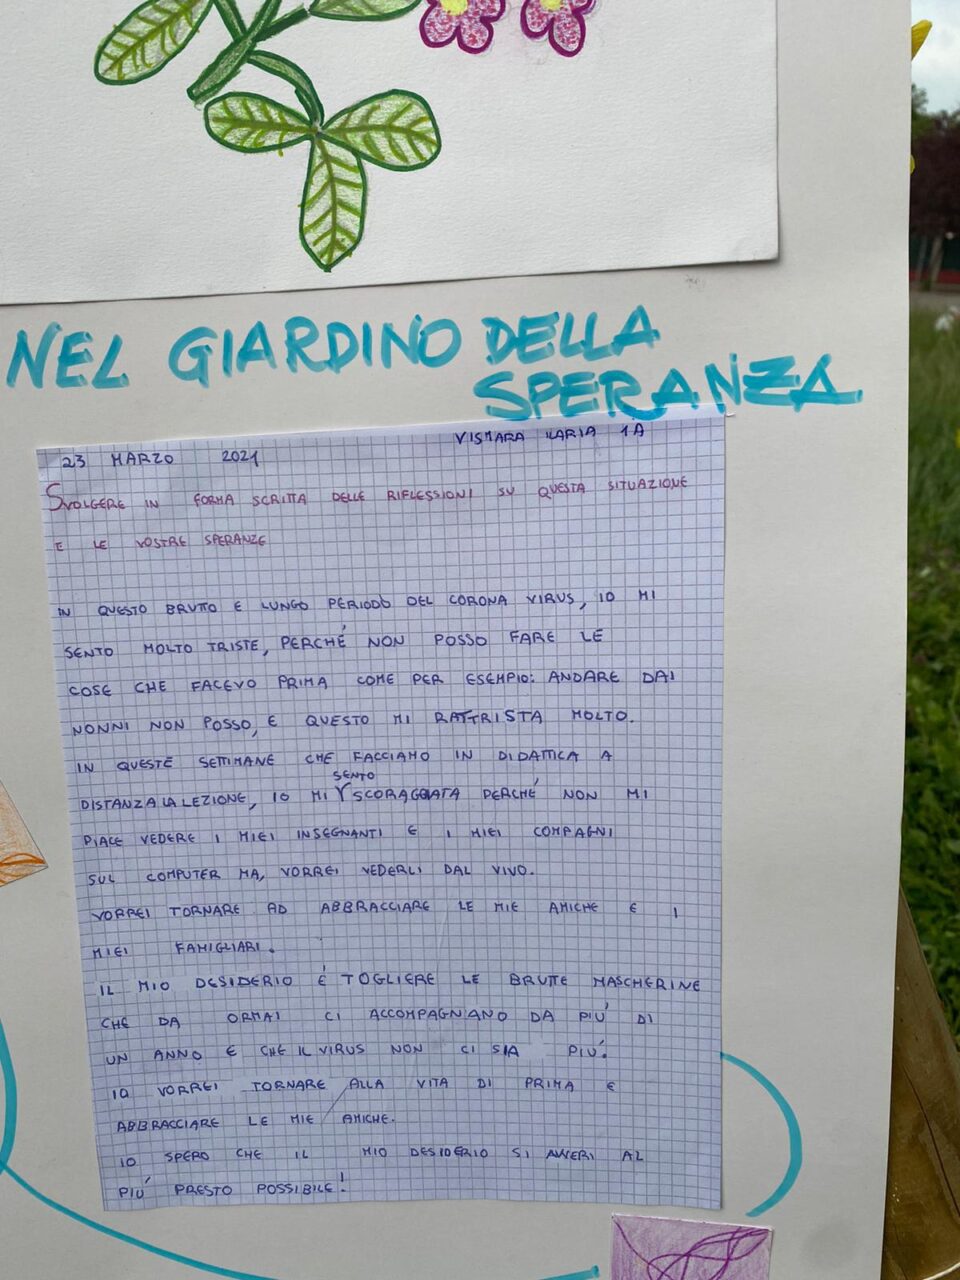 NEL GIARDINO DELLA
SPERANZA
VISMARA ILARIA 1A
23 MARZO 2021
SVOLGERE IN FORMA SCRITTA DELLE RIFLESSIONI SU QUESTA SITUAZIONE
E LE VOSTRE SPERANZE
IN QUESTO BRUTTO E LUNGO PERIODO DEL CORONA VIRUS, IO MI
SENTO MOLTO TRISTE, PERCHÉ NON POSSO FARE LE
COSE CHE FACEVO PRIMA COME PER ESEMPIO: ANDARE DAI
NONNI NON POSSO, E QUESTO MI RATTRISTA MOLTO.
IN QUESTE SETTIMANE CHE FACCIAMO IN DIDATTICA A
SENTO
DISTANZA LA LEZIONE, IO MI SCORAGGIATA PERCHÉ NON MI
PIACE VEDERE I MIEI INSEGNANTI E I MIEI COMPAGNI
SUL COMPUTER MA, VORREI VEDERLI DAL VIVO.
VORREI TORNARE AD ABBRACCIARE LE MIE AMICHE E I
MIEI FAMIGLIARI.
IL MIO DESIDERIO É TOGLIERE LE BRUTTE MASCHERINE
CHE DA ORMAI CI ACCOMPAGNANO DA PIÚ DI
UN ANNO E CHE IL VIRUS NON CI SIA PIÚ.
IO VORREI TORNARE ALLA VITA DI PRIMA E
ABBRACCIARE LE MIE AMICHE.
IO SPERO CHE IL MIO DESIDERIO SI AVVERI AL
PIÚ PRESTO POSSIBILE!